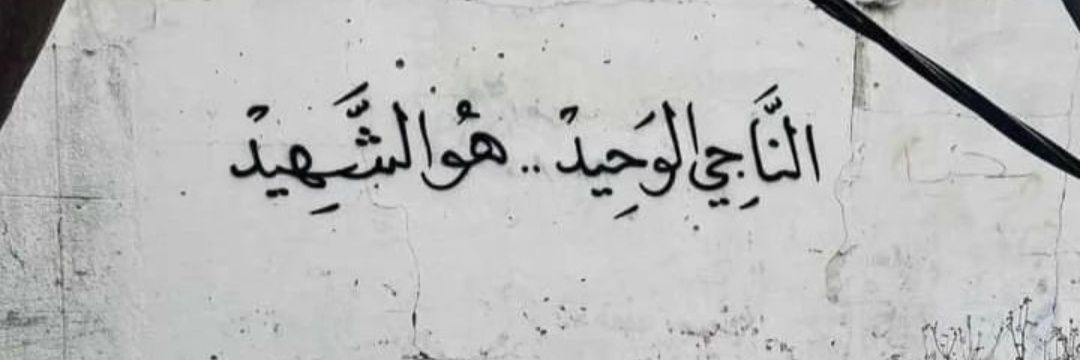 النَّاجِي الوَحِيدْ .. هُوَ الشَّهِيدْ